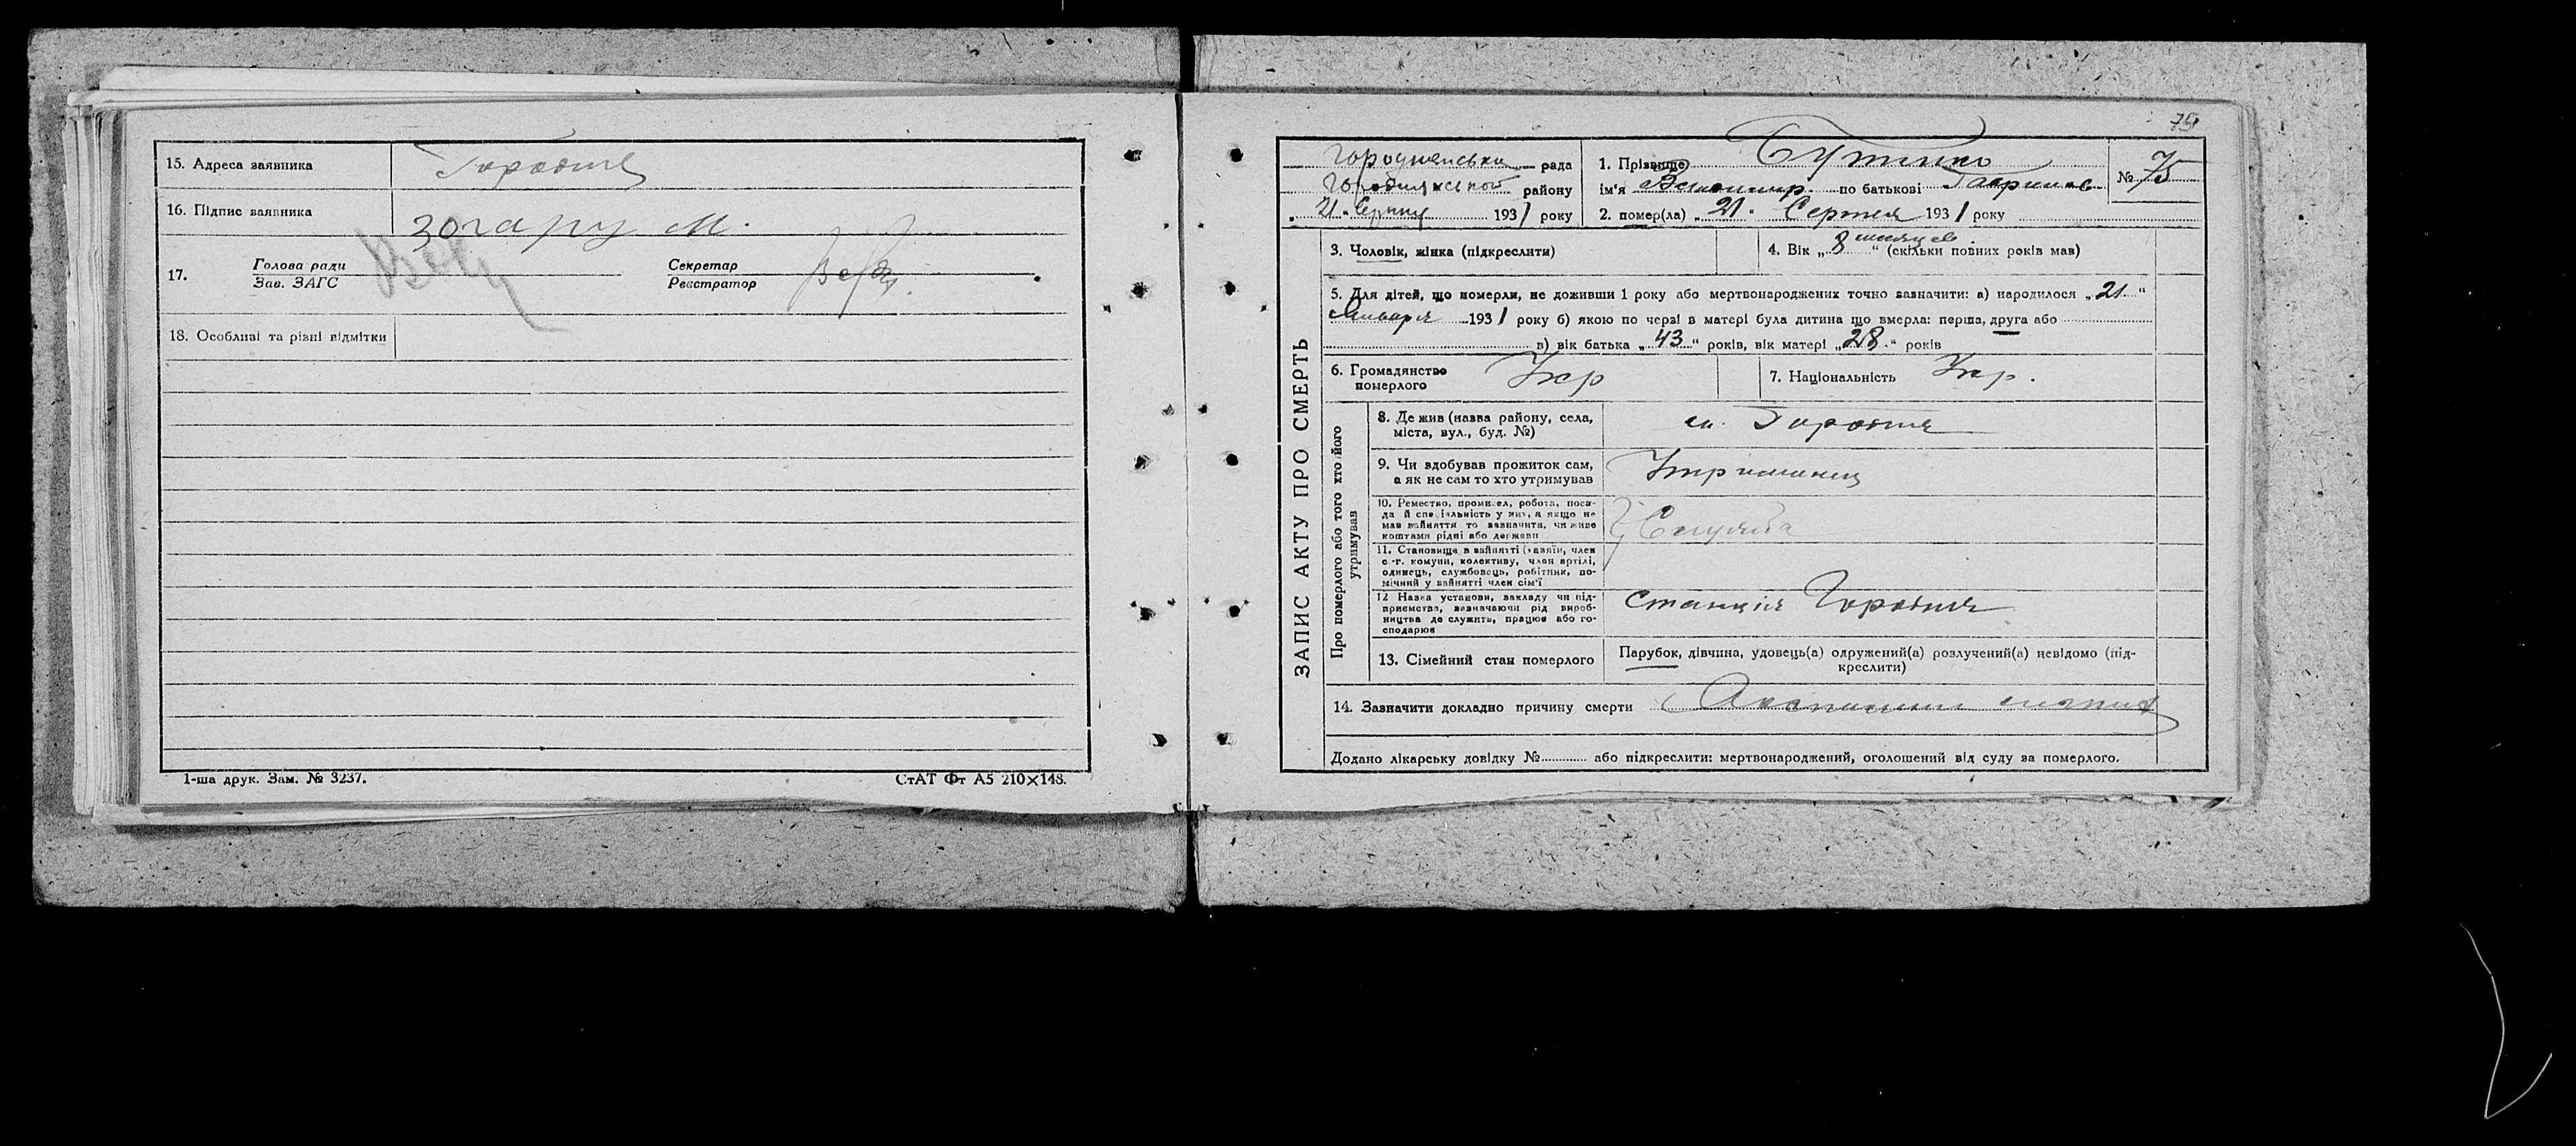 15. Адреса заявника Городня
16. Підпис заявника
17. Голова ради
Зав. ЗАГС
Секретар
Реєстратор
18. Особливі та різні відмітки
1-ша друк. Зам. № 3237.
СтАТ Фт А5 210×148.
75
рада
району
21 193 1 року
1. Прізвище
№ 75
ім'я по батькові
2. помер(ла) „ 21 " Серпня 193 1 року
ЗАПИС АКТУ ПРО СМЕРТЬ
3. Чоловік, жінка (підкреслити)
4. Вік „ 8 місяців " (скільки повних років мав)
5. Для дітей, що померли, не доживши 1 року або мертвонароджених точно зазначити: а) народилося „ 21 "
Января 193 1 року б) якою по черзі в матері була дитина що вмерла: перша, друга або
в) вік батька „ 43 " років, вік матері „ 28 " років
6. Громадянство
померлого Укр
7. Національність Укр.
Про померлого або того хто його
утримував
8. Де жив (назва району, села,
міста, вул., буд. №) Городня
9. Чи здобував прожиток сам,
а як не сам то хто утримував Утриманец
10. Ремество, промисел, робота, поса-
да й спеціальність у них, а якщо не
мав зайняття то зазначити, чи живе
коштами рідні або держави Служба
11. Становище в зайнятті (хазяїн, член
с.-г. комуни, колективу, член артілі,
одинець, службовець, робітник, по-
мічний у зайнятті член сім'ї
12 Назва установи, закладу чи під-
приємства, зазначаючи рід вироб-
ництва де служить, працює або го-
сподарює Станция Городня
13. Сімейний стан померлого
Парубок, дівчина, удовець(а) одружений(а) розлучений(а) невідомо (під-
креслити)
14. Зазначити докладно причину смерти
Додано лікарську довідку № або підкреслити: мертвонароджений, оголошений від суду за померлого.